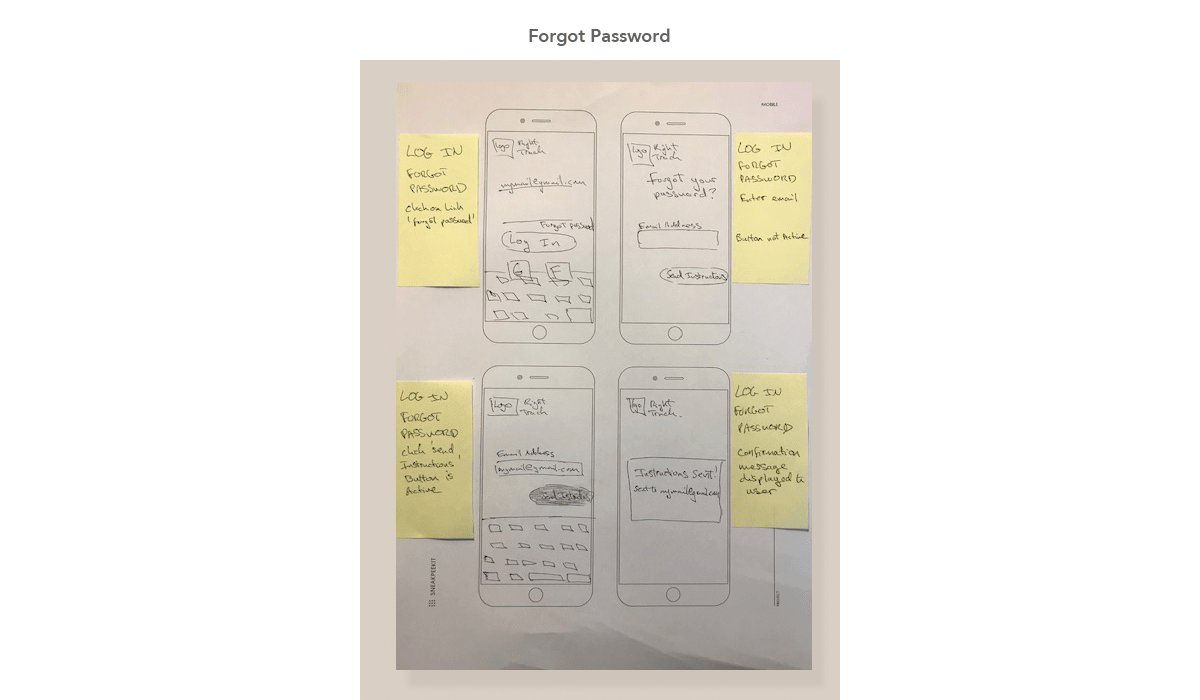 Forgot Password
MOBILE
LOG IN
FORGOT
PASSWORD
Click on Link
'forgot password'
Logo
Right
Track
mymail@gmail.com
Forgot password
Log In
G F
Logo
Right
Track
Forgot your
password?
Email Address
Send Instructions
LOG IN
FORGOT
PASSWORD
Enter email
Button not Active
LOG IN
FORGOT
PASSWORD
click 'send
Instructions'
Button is
Active
Logo
Right
Track
Email Address
mymail@gmail.com
Send Instructions
Logo
Right
Track.
Instructions Sent!
Sent to mymail@gmail.com
LOG IN
FORGOT
PASSWORD
Confirmation
message
displayed to
user
SNEAKPEEKIT
PROJECT